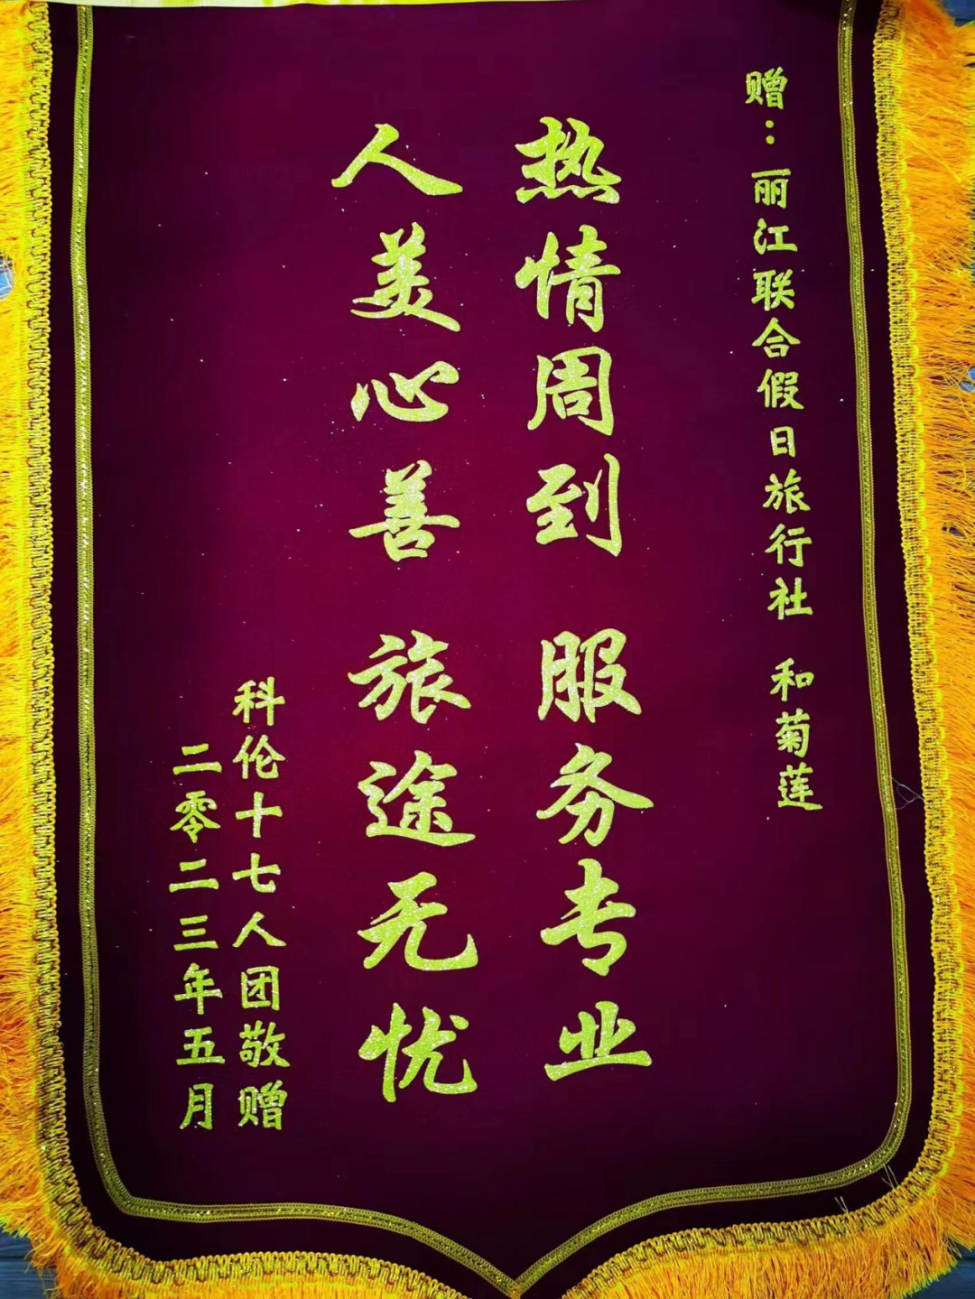 赠：丽江联合假日旅行社 和菊莲
热情周到 服务专业
人美心善 旅途无忧
科伦十七人团敬赠
二零二三年五月